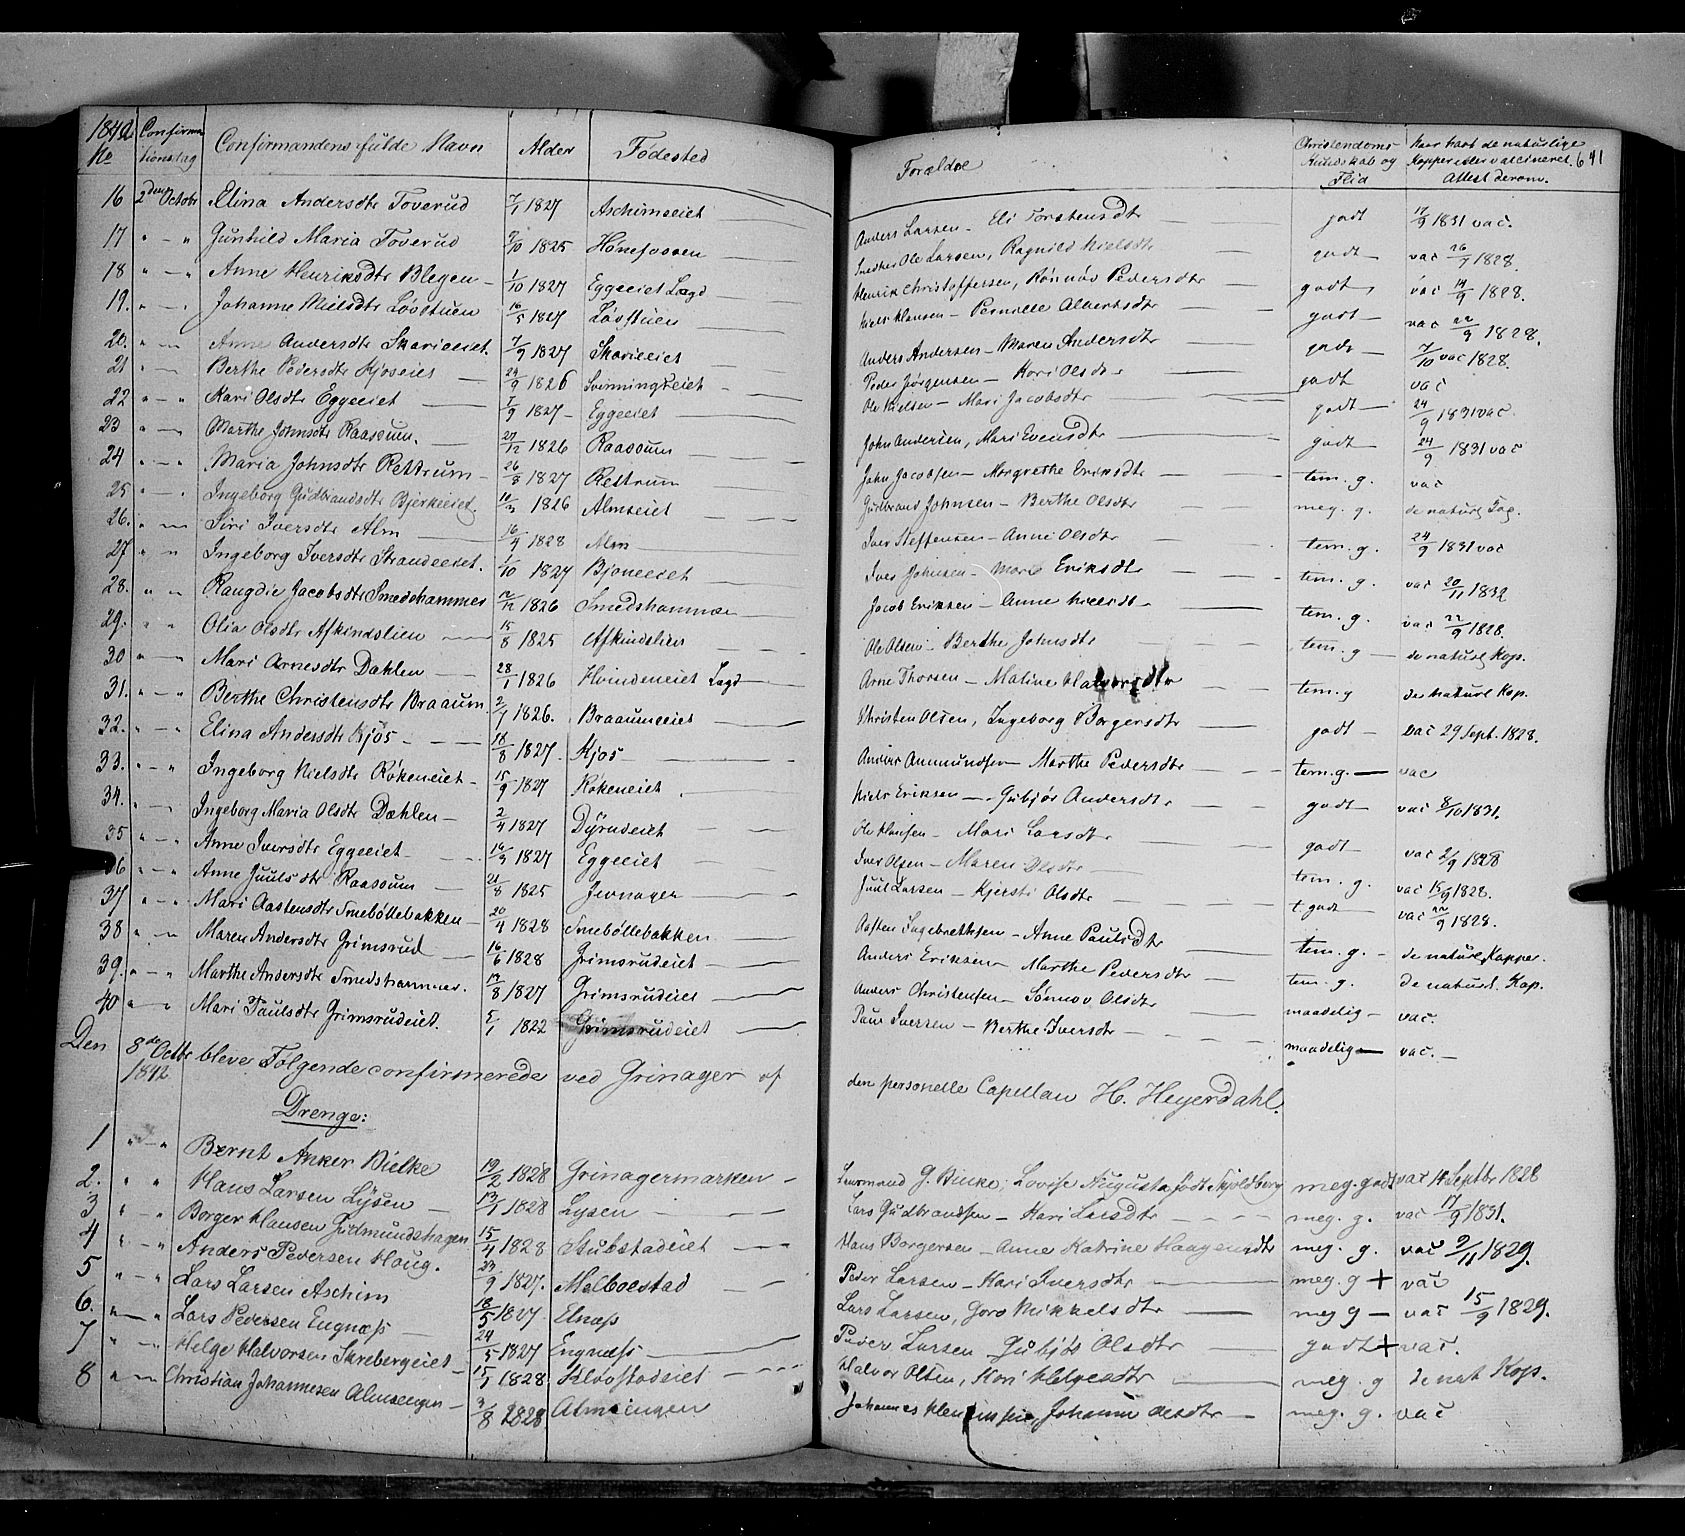 1842 Confirma- Confirmandens fulde Navn Alder Fødested Forældre Christendoms Naar havt de naturlige
No tionsdag Kundskab og Kopper eller vaccineret. 641
Flid Attest derom.
16 2den Octobr Elina Andersdtr Toverud 7/1 1827 Aschimseiet Anders Larsen - Eli Torstensdtr godt 17/9 1831 vac.
17 " - " Gunhild Maria Toverud 9/10 1825 Hønefossen Ole Larsen, Ragnild Nielsdtr godt - vac 26/7 1828.
18 " - " Anne Henriksdtr Blegen 1/10 1827 Eggeeiet Lagd Henrik Christoffersen, Rønnøv Pedersdtr godt vac 14/9 1828.
19. " - " Johanne Nielsdtr Løvstuen 16/5 1827 Løvstuen Niels Hansen - Pernille Albertsdtr godt - vac 22/9 1828.
20. " - " Anne Andersdtr Skarieeiet. 7/9 1827 Skarieeiet Anders Andersen - Maren Andersdtr godt - 7/10 vac 1828.
21 " - " Berthe Pedersdtr Kjoseiet 24/9 1826 Svinningseiet Peder Jørgensen - Kari Olsdtr godt vac
22 " - " Kari Olsdtr Eggeeiet 7/9 1827 - Eggeeiet Ole Nielsen - Mari Jacobsdtr godt - 24/9 1831 vac
23 " - " Marthe Johnsdtr Raassum. 27/12 1826 Raassum John Andersen, Mari Evensdtr godt - 24/9 1831 vac
24 " - " Maria Johnsdtr Rettrum 26/8 1827 Rettrum John Jacobsen - Margrethe Eriksdtr tem. g. vac
25 " - " Ingeborg Gudbrandsdtr Bjerkeeiet. 10/3 1826 Almseiet Gudbrand Johnsen - Berthe Olsdtr meg. g. de naturl. Kop.
26. " - " Siri Iversdtr Alm 16/4 1828 Alm Iver Steffensen - Anne Olsdtr tem. g. 24/9 1831 vac
27 " " Ingeborg Iversdtr Strandeeiet. 1/10 1827 Bjoneeiet Iver Johnsen - Mari Eriksdtr tem. g. vac 20/11 1832
28. " " Raugdie Jacobsdtr Smedshammer 12/12 1826 Smedshammer Jacob Eriksen - Anne Nielsdtr tem. g. vac 22/9 1828.
29. " " Olia Olsdtr Afkindslien 15/8 1825 Afkindslien Ole Olsen - Berthe Johnsdtr tem. g - de naturl Kop.
30 " - " Mari Arnesdtr Dahlen 28/1 1826 Hvindeneiet Lagd Arne Thorsen - Maline Halvorsdtr tem. g de naturl Kop.
31. " - " Berthe Christensdtr Braaum 2/7 1826. Braaumeeiet Christen Olsen, Ingeborg Borgersdtr godt - vac 29 Sept. 1828.
32. " - " Elina Andersdtr Kjos 18/8 1827. Kjos Anders Amundsen - Marthe Pedersdtr tem. g. - vac
33. " - " Ingeborg Nielsdtr Røkeneiet 15/9 1827 Røkeneiet Niels Eriksen - Gubjør Andersdtr godt vac 8/10 1831.
34. " - " Ingeborg Maria Olsdtr Dæhlen 2/4 1827 Dyrudeiet Ole Hansen - Mari Larsdtr godt vac 2/9 1828
35 " - " Anne Iversdtr Eggeeiet 16/9 1827 Eggeeiet Iver Olsen - Maren Olsdtr tem. g. vac 15/9 1828.
36 " - " Anne Juulsdtr Raassum 21/8 1825 Jevnager Juul Larsen - Kjersti Olsdtr t. godt vac 22/9 1828.
37 " - " Mari Aastensdtr Smebøllebakken 20/4 1828 Smebøllebakken Aasten Ingebrethsen - Anne Paulsdtr tem. g. - de naturl. Kopper.
38 " - " Maren Andersdtr Grimsrud 16/6 1828 Grimsrudeiet Anders Eriksen - Marthe Pedersdtr tem. g. de naturl. Kop.
39. " - " Marthe Andersdtr Smedshammer. 13/8 1827 Grimsrudeiet Anders Christensen - Sønnøv Olsdtr maadelig - vac.
40 " - " Mari Paulsdtr Grimsrudeiet. 5/1 1822 Grimsrudeiet Paul Iversen - Berthe Iversdtr maadelig - vac. -
Den 8de Octbr bleve Følgende confirmerede ved Grinager af den personelle Capellan H. Heyerdahl.
1842
Drenge:
1 " - " Bernt Anker Bielke 19/2 1828 Grinagermarken G. Bielke; Lovise Augusta født Skjoldborg meg. godt vac 14 Septbr 1828
2. " " Hans Larsen Lysen 13/1 1828 Lysen Lars Gudbrandsen - Kari Larsdtr meg. g. vac 17/9 1831.
3 " - " Borger Hansen Gudmundshagen 15/4 1828 Stubstadeiet Hans Borgersen - Anne Katrine Haagensdtr meg. g. vac 9/11 1829.
4 " - " Anders Pedersen Haug. 23/9 1827. Melboestad Peder Larsen - Kari Iversdtr meg. g + vac
5 " - " Lars Larsen Aschim 18/5 1827 Elnæss Lars Larsen, Goro Mikkelsdtr meg g - vac 15/9 1829.
6. " - " Lars Pedersen Engnæss 24/5 1827 Engnæss Peder Larsen - Gubjør Olsdtr godt + vac.
7 " - " Helge Halvorsen Skrebergeiet 15/1 1828 Kløvstadeiet Halvor Olsen, Kari Helgesdtr meg. g de nat Kop.
8 " - " Christian Johannesen Almsengen 3/8 1828 Almsengen Johannes, Johanne Olsdtr meg. g. vac